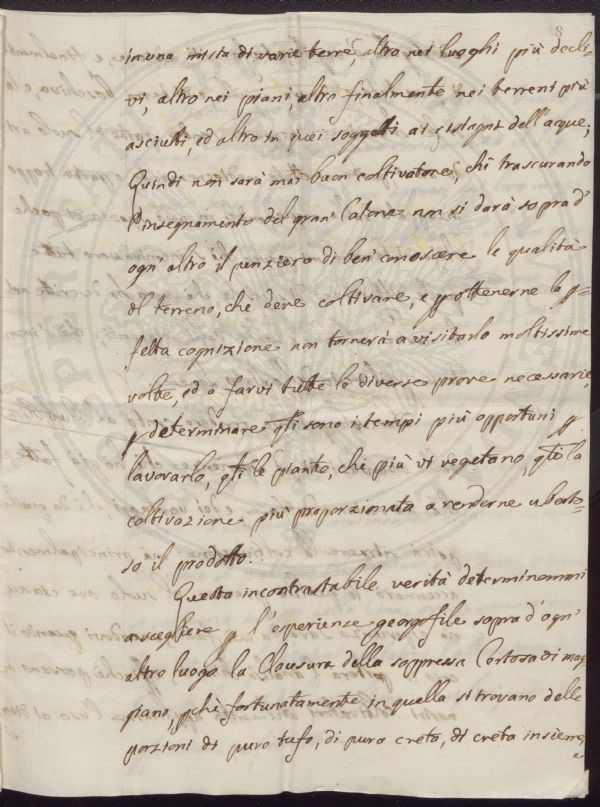 8
in una mista di varie terre, altro nei luoghi più decli-
vi, altro nei piani, altro finalmente nei terreni più
asciutti, ed altro in quei soggetti ai ristagni dell'acque;
Quindi non sarà mai buon coltivatore, chi trascurando
l'insegnamento del gran' Catone non si darà sopra d'
ogn' altro il penziero di ben' conoscere le qualità
del terreno, che deve coltivare, e p ottenerne la p=
fetta cognizione non tornerà a visitarlo moltissime
volte, ed a farvi tutte le diverse prove necessarie,
p determinare qli sono i tempi più opportuni p
lavorarlo, qli le piante, che più vi vegetano, qle la
coltivazione più proporzionata a renderne uberto=
so il prodotto.
Questa incontrastabile verità determinommi
a scegliere p l'esperienze georgofile sopra d'ogn'
altro luogo la Clausura della soppressa Certosa di mag
giano, pchè fortunatamente in quella si trovano delle
porzioni di puro tufo, di pura creta, di creta insieme,
e